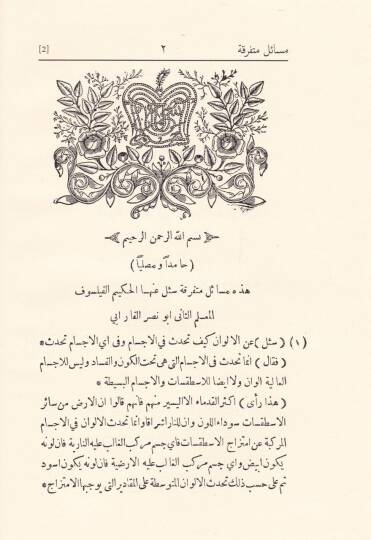 مسائل متفرقة ٢ [2]
بسم الله الرحمن الرحيم
(حامداً ومصلياً)
هذه مسائل متفرقة سئل عنها الحكيم الفيلسوف
المعلم الثانى ابو نصر الفارابي
(١) (سئل) عن الالوان كيف تحدث في الاجسام وفى اي الاجسام تحدث*
(فقال) انما تحدث فى الاجسام التى هى تحت الكون والفساد وليس للاجسام
العالية الوان ولا ايضا للاسطقسات والاجسام البسيطة*
(هذا رأى) اكثر القدماء الا اليسير منهم فانهم قالوا ان الارض من سائر
الاسطقسات سوداء اللون وان للنار اشراقا وانما تحدث الالوان في الاجسام
المركبة عن امتزاج الاسطقسات فاي جسم مركب الغالب عليه النارية فان لونه
يكون ابيض واي جسم مركب الغالب عليه الارضية فان لونه يكون اسود
ثم على حسب ذلك تحدث الالوان المتوسطة على المقادير التى يوجبها الامتزاج*